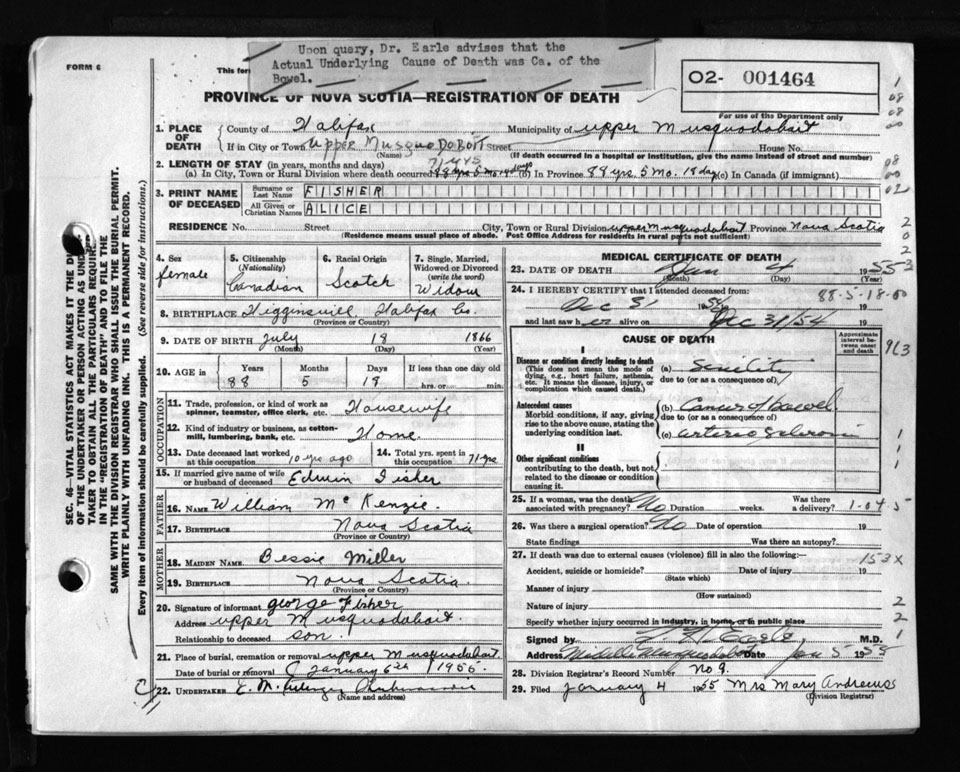 Upon query, Dr. Earle advises that the
Actual Underlying Cause of Death was Ca. of the
Bowel.
FORM 6
This for
O2- 001464
For use of the Department only
PROVINCE OF NOVA SCOTIA—REGISTRATION OF DEATH
1. PLACE OF DEATH
County of Halifax Municipality of Upper Musquodobait
If in City or Town Upper MusquoDoBoit Street House No.
(Name) (If death occurred in a hospital or institution, give the name instead of street and number)
2. LENGTH OF STAY (in years, months and days)
71 yrs
(a) In City, Town or Rural Division where death occurred (b) In Province 88 yrs. 5 mo. 18 days (c) In Canada (if immigrant)
3. PRINT NAME OF DECEASED
Surname or Last Name FISHER
All Given or Christian Names ALICE
RESIDENCE No. Street City, Town or Rural Division upper Musquodobait Province Nova Scotia
(Residence means usual place of abode. Post Office Address for residents in rural parts not sufficient)
4. Sex
female
5. Citizenship (Nationality)
Canadian
6. Racial Origin
Scotch
7. Single, Married, Widowed or Divorced (write the word)
Widow
8. BIRTHPLACE Higginsvill, Halifax Co.
(Province or Country)
9. DATE OF BIRTH July 18 1866
(Month) (Day) (Year)
10. AGE in Years Months Days If less than one day old
88 5 18 hrs. or min.
OCCUPATION
11. Trade, profession, or kind of work as spinner, teamster, office clerk, etc. Housewife
12. Kind of industry or business, as cotton-mill, lumbering, bank, etc. Home.
13. Date deceased last worked at this occupation 10 yrs ago
14. Total yrs. spent in this occupation 71 yrs
15. If married give name of wife or husband of deceased Edwin Fisher
FATHER
16. NAME William McKenzie.
17. BIRTHPLACE Nova Scotia
(Province or Country)
MOTHER
18. MAIDEN NAME Bessie Miller
19. BIRTHPLACE Nova Scotia.
(Province or Country)
20. Signature of informant George Fisher
Address upper Musquodobait.
Relationship to deceased son.
21. Place of burial, cremation or removal upper Musquodobait
Date of burial or removal January 6th 1955.
22. UNDERTAKER E. M.
(Name and address)
MEDICAL CERTIFICATE OF DEATH
23. DATE OF DEATH Jan 4 1955
(Month) (Day)
24. I HEREBY CERTIFY that I attended deceased from:
Dec 31 1954 to 19
88-5-18-00
and last saw her alive on Dec 31/54 19
CAUSE OF DEATH
Approximate interval between onset and death
963
I
Disease or condition directly leading to death
(This does not mean the mode of dying, e.g., heart failure, asthenia, etc. It means the disease, injury, or complication which caused death.)
(a) Senility
due to (or as a consequence of)
Antecedent causes
Morbid conditions, if any, giving rise to the above cause, stating the underlying condition last.
(b) Cancer of bowel
due to (or as a consequence of)
(c) arterio sclerosis
II
Other significant conditions
contributing to the death, but not related to the disease or condition causing it.
25. If a woman, was the death associated with pregnancy? No Duration weeks. Was there a delivery? 1-04-5
26. Was there a surgical operation? No Date of operation 19
State findings Was there an autopsy?
153X
27. If death was due to external causes (violence) fill in also the following:—
Accident, suicide or homicide? Date of injury 19
(State which)
Manner of injury
(How sustained)
Nature of injury
Specify whether injury occurred in industry, in home, or in public place
Signed by Earle, M.D.
Address Middle Musquodoboit Date Jan 5 1955
28. Division Registrar's Record Number No 9.
29. Filed January 4 1955 Mrs Mary Andrews
(Division Registrar)
SEC. 46—VITAL STATISTICS ACT MAKES IT THE DUTY
OF THE UNDERTAKER OR PERSON ACTING AS UNDER-
TAKER TO OBTAIN ALL THE PARTICULARS REQUIRED
IN THE "REGISTRATION OF DEATH" AND TO FILE THE
SAME WITH THE DIVISION REGISTRAR WHO SHALL ISSUE THE BURIAL PERMIT.
WRITE PLAINLY WITH UNFADING INK. THIS IS A PERMANENT RECORD.
Every item of information should be carefully supplied. (See reverse side for instructions.)